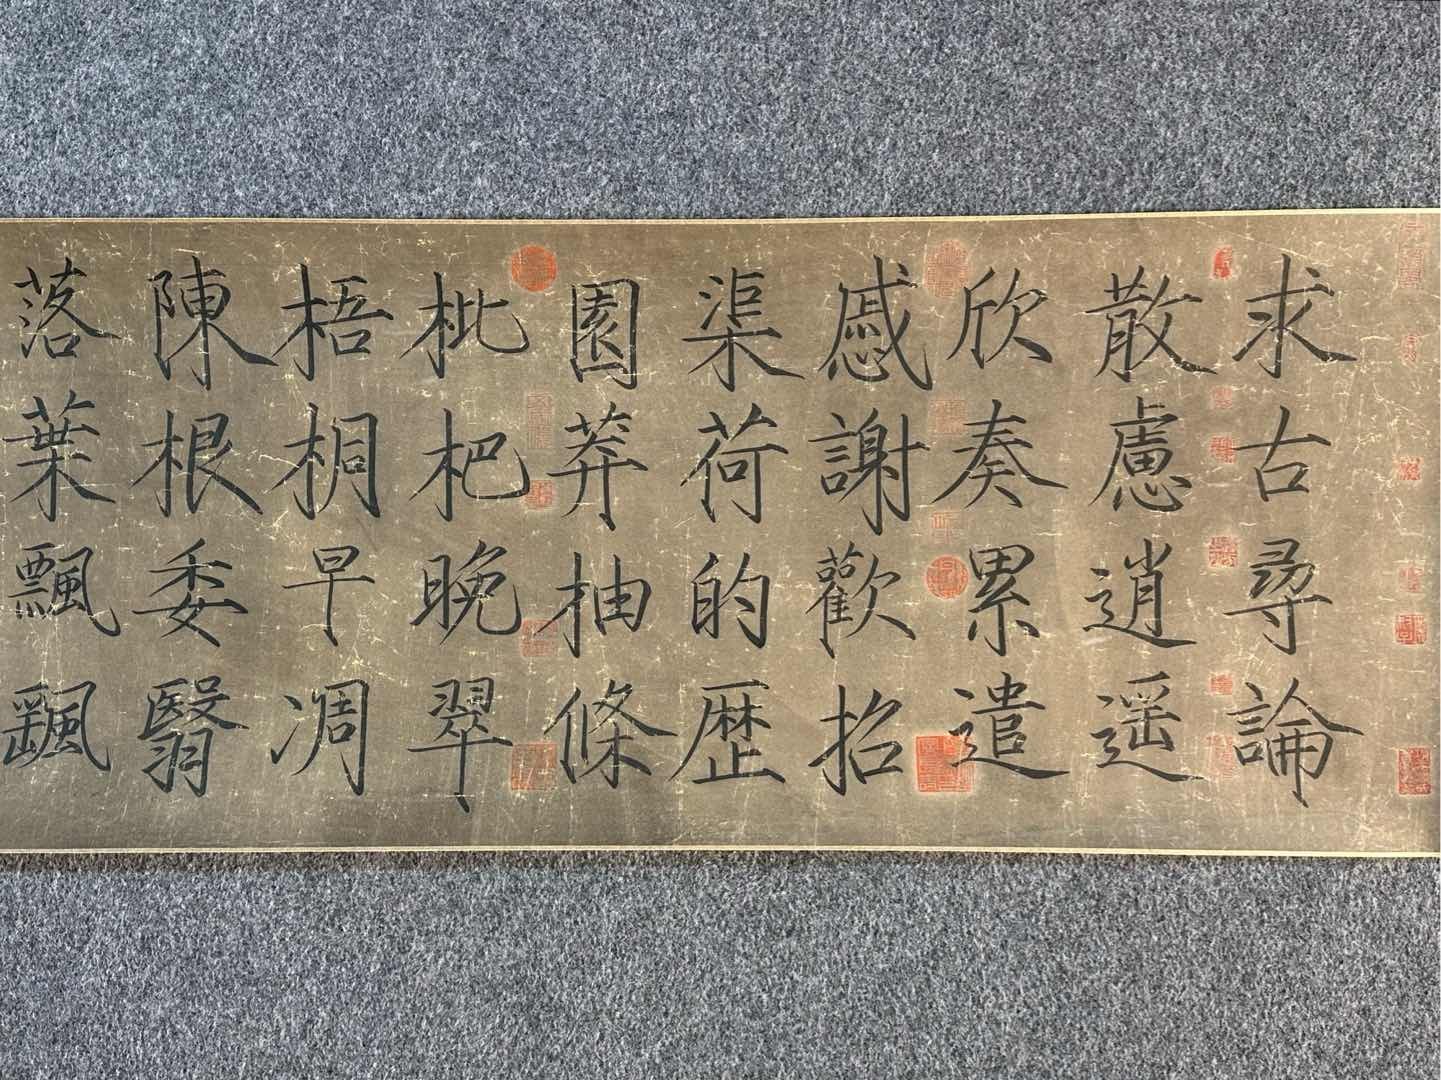 求古尋論
散慮逍遥
欣奏累遣
慼謝歡招
渠荷的歷
園莽抽條
枇杷晚翠
梧桐早凋
陳根委翳
落葉飄颻